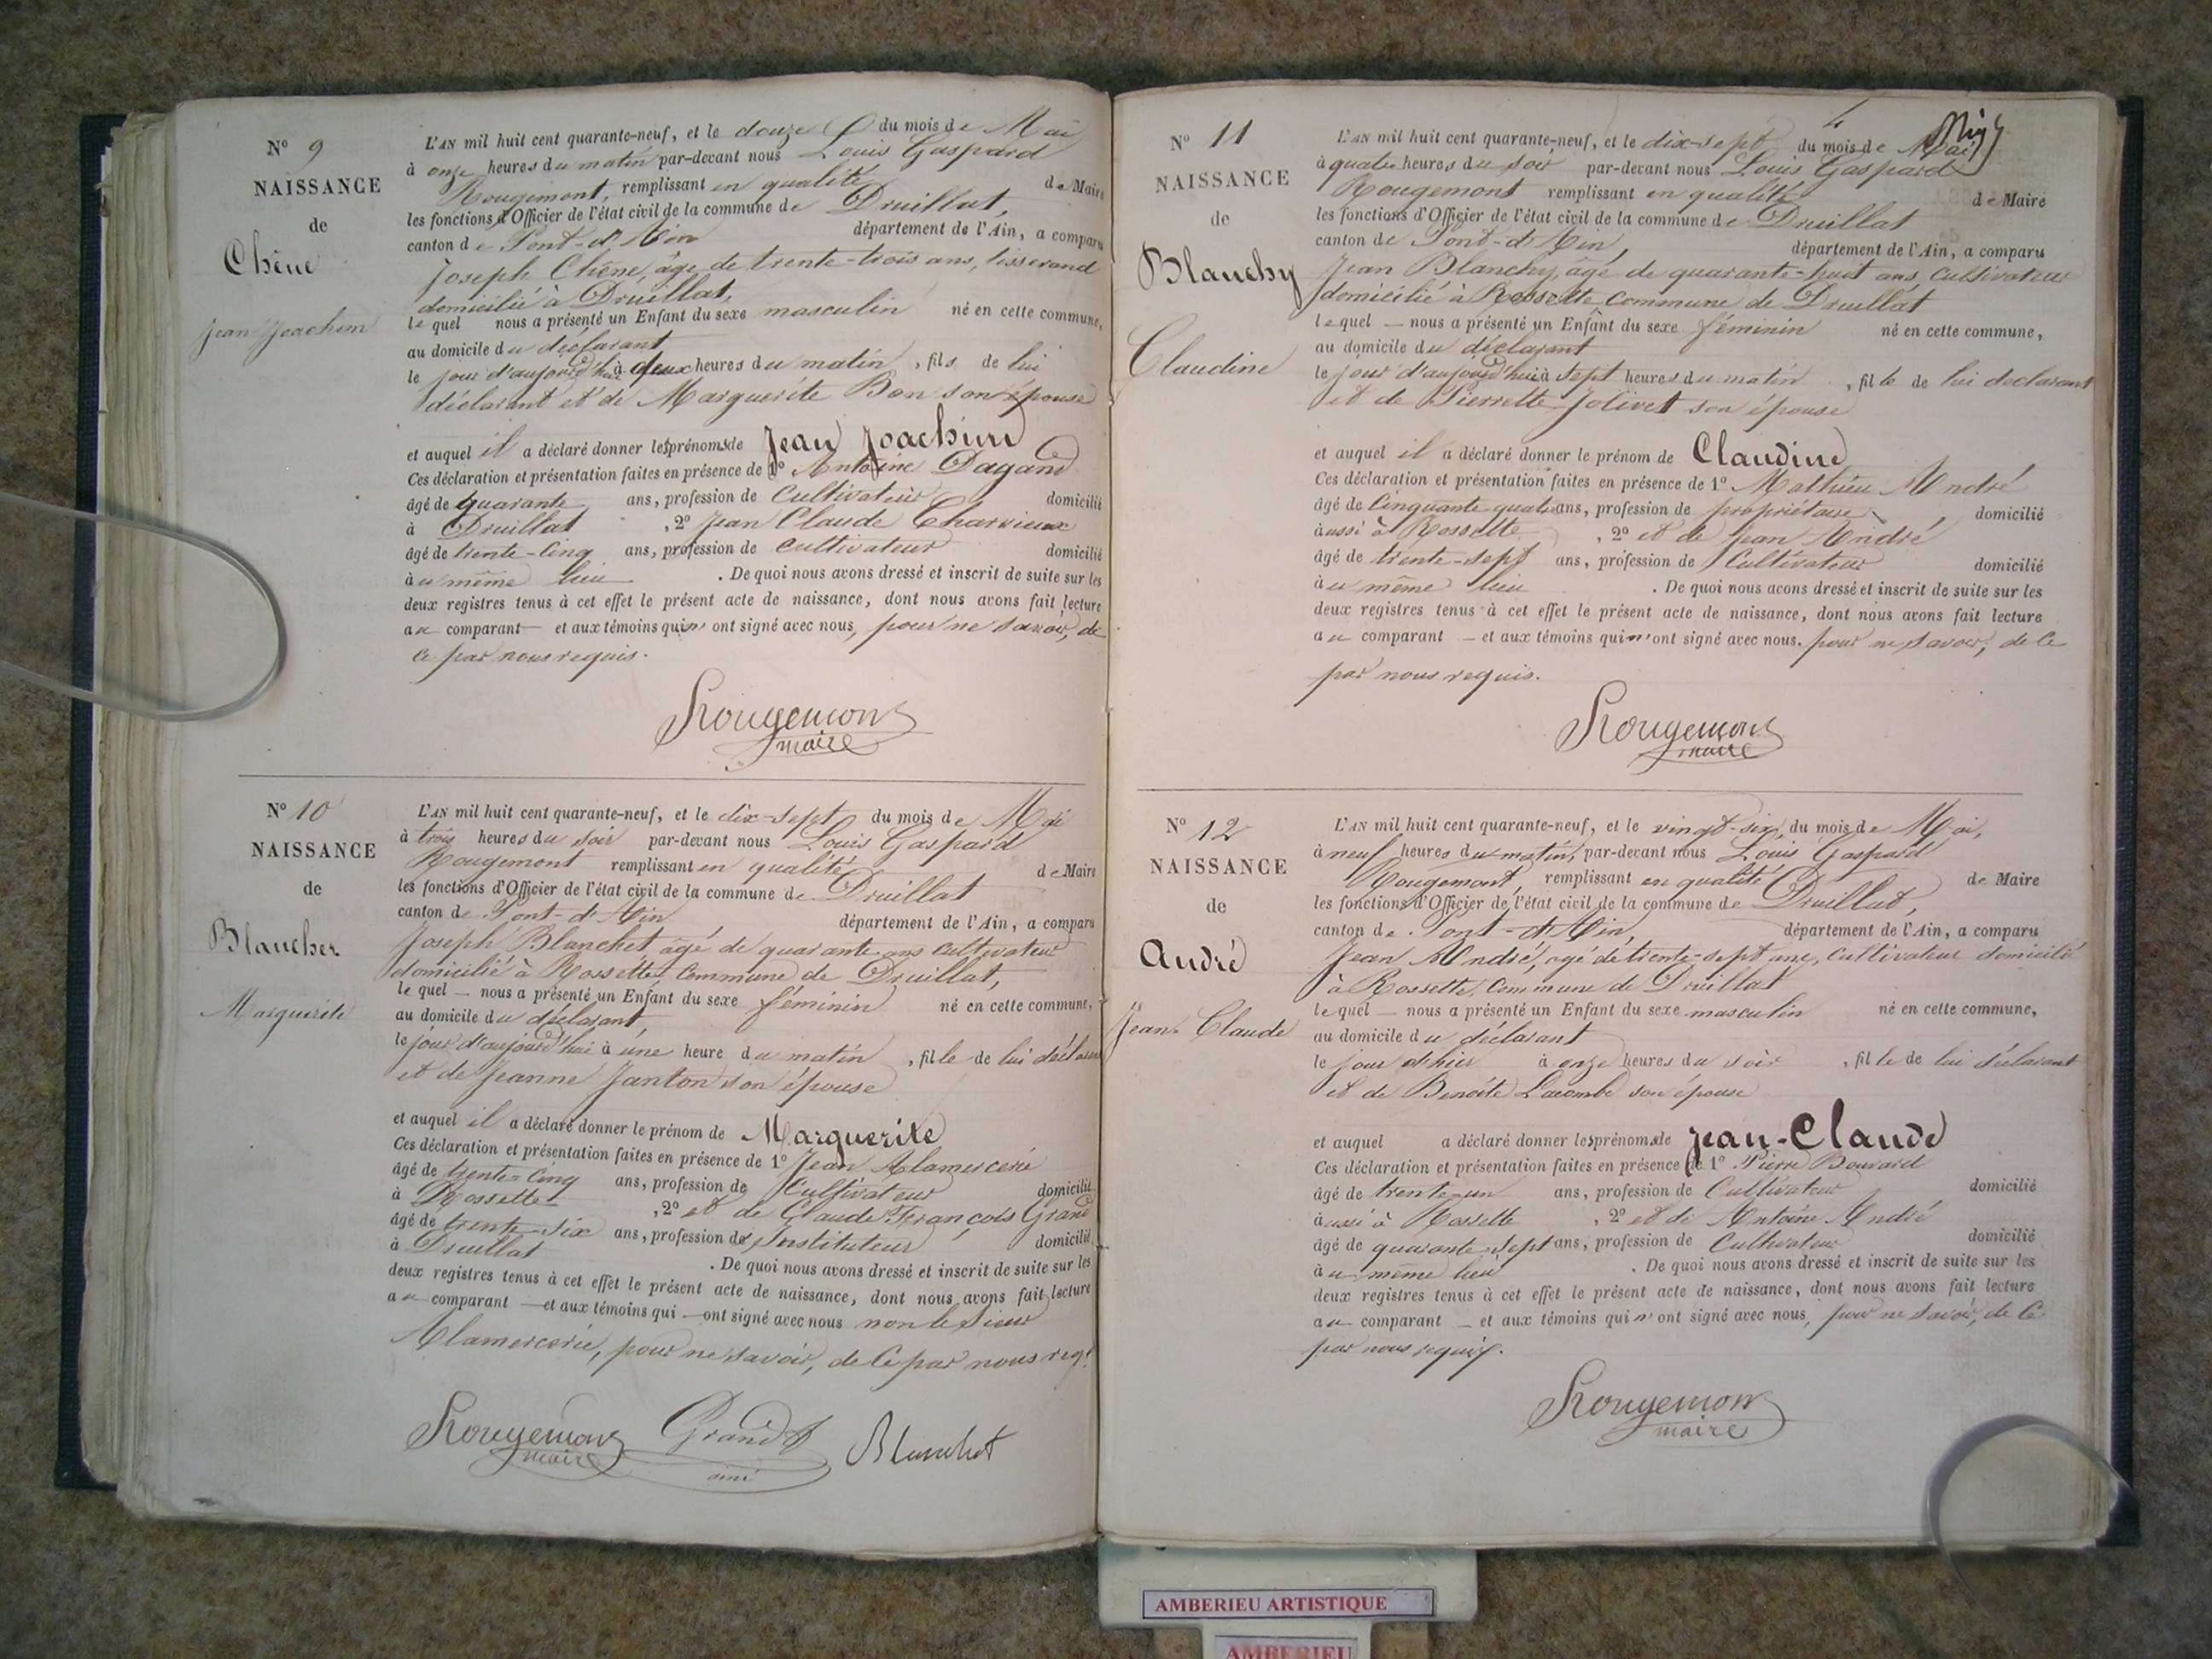 N° 9
NAISSANCE
de
Chêne
Jean Joachim
L'AN mil huit cent quarante-neuf, et le douze du mois de Mai
à onze heures du matin par-devant nous Louis Gaspard
Rougemont, remplissant en qualité de Maire
les fonctions d'Officier de l'état civil de la commune de Druillat,
canton de Pont-d'Ain département de l'Ain, a comparu
Joseph Chêne, âgé de trente-trois ans, tisserand
domicilié à Druillat,
le quel nous a présenté un Enfant du sexe masculin né en cette commune,
au domicile du déclarant
le jour d'aujourd'hui à deux heures du matin, fils de lui
déclarant et de Marguerite Bon son épouse
et auquel il a déclaré donner les prénoms de Jean Joachim
Ces déclaration et présentation faites en présence de 1° Antoine Dagand
âgé de quarante ans, profession de Cultivateur domicilié
à Druillat, 2° Jean Claude Charvieux
âgé de trente-cinq ans, profession de cultivateur domicilié
au même lieu. De quoi nous avons dressé et inscrit de suite sur les
deux registres tenus à cet effet le présent acte de naissance, dont nous avons fait lecture
au comparant et aux témoins qui n'ont signé avec nous, pour ne savoir, de
ce par nous requis.
Rougemont
maire
N° 10
NAISSANCE
de
Blanchet
Marguerite
L'AN mil huit cent quarante-neuf, et le dix-sept du mois de Mai
à trois heures du soir par-devant nous Louis Gaspard
Rougemont remplissant en qualité de Maire
les fonctions d'Officier de l'état civil de la commune de Druillat
canton de Pont-d'Ain département de l'Ain, a comparu
Joseph Blanchet âgé de quarante ans cultivateur
domicilié à Rossette, Commune de Druillat,
le quel — nous a présenté un Enfant du sexe féminin né en cette commune,
au domicile du déclarant,
le jour d'aujourd'hui à une heure du matin, fille de lui déclarant
et de Jeanne Janton son épouse
et auquel il a déclaré donner le prénom de Marguerite
Ces déclaration et présentation faites en présence de 1° Jean Alamercerie
âgé de trente-cinq ans, profession de Cultivateur domicilié
à Rossette, 2° et de Claude François Grand
âgé de trente-six ans, profession de Instituteur domicilié
à Druillat. De quoi nous avons dressé et inscrit de suite sur les
deux registres tenus à cet effet le présent acte de naissance, dont nous avons fait lecture
au comparant — et aux témoins qui — ont signé avec nous non le sieur
Alamercerie, pour ne savoir, de ce par nous req.
Rougemont Grand Blanchet
maire ainé
N° 11
NAISSANCE
de
Blanchy
Claudine
L'AN mil huit cent quarante-neuf, et le dix-sept du mois de Mai
à quatre heures du soir par-devant nous Louis Gaspard
Rougemont remplissant en qualité de Maire
les fonctions d'Officier de l'état civil de la commune de Druillat
canton de Pont-d'Ain, département de l'Ain, a comparu
Jean Blanchy, âgé de quarante-huit ans, cultivateur
domicilié à Rossette, Commune de Druillat
le quel — nous a présenté un Enfant du sexe féminin né en cette commune,
au domicile du déclarant
le jour d'aujourd'hui à sept heures du matin, fille de lui déclarant
et de Pierrette Jolivet son épouse
et auquel il a déclaré donner le prénom de Claudine
Ces déclaration et présentation faites en présence de 1° Mathieu André
âgé de Cinquante quatre ans, profession de propriétaire, domicilié
aussi à Rossette, 2° et de Jean André
âgé de trente-sept ans, profession de Cultivateur domicilié
au même lieu. De quoi nous avons dressé et inscrit de suite sur les
deux registres tenus à cet effet le présent acte de naissance, dont nous avons fait lecture
au comparant — et aux témoins qui n'ont signé avec nous. pour ne savoir, de ce
par nous requis.
Rougemont
maire
N° 12
NAISSANCE
de
André
Jean-Claude
L'AN mil huit cent quarante-neuf, et le vingt-six, du mois de Mai,
à neuf heures du matin, par-devant nous Louis Gaspard
Rougemont, remplissant en qualité de Maire
les fonctions d'Officier de l'état civil de la commune de Druillat,
canton de Pont-d'Ain, département de l'Ain, a comparu
Jean André, âgé de trente-sept ans, Cultivateur domicilié
à Rossette, Commune de Druillat
le quel — nous a présenté un Enfant du sexe masculin né en cette commune,
au domicile du déclarant
le jour d'hier à onze heures du soir, fille de lui déclarant
et de Benoîte Lacombe son épouse
et auquel a déclaré donner les prénoms de Jean-Claude
Ces déclaration et présentation faites en présence de 1° Pierre Bouvard
âgé de trente-un ans, profession de Cultivateur domicilié
aussi à Rossette, 2° et de Antoine André
âgé de quarante-sept ans, profession de Cultivateur domicilié
au même lieu. De quoi nous avons dressé et inscrit de suite sur les
deux registres tenus à cet effet le présent acte de naissance, dont nous avons fait lecture
au comparant — et aux témoins qui n'ont signé avec nous, pour ne savoir, de ce
par nous requis.
Rougemont
maire
AMBERIEU ARTISTIQUE
AMBERIEU